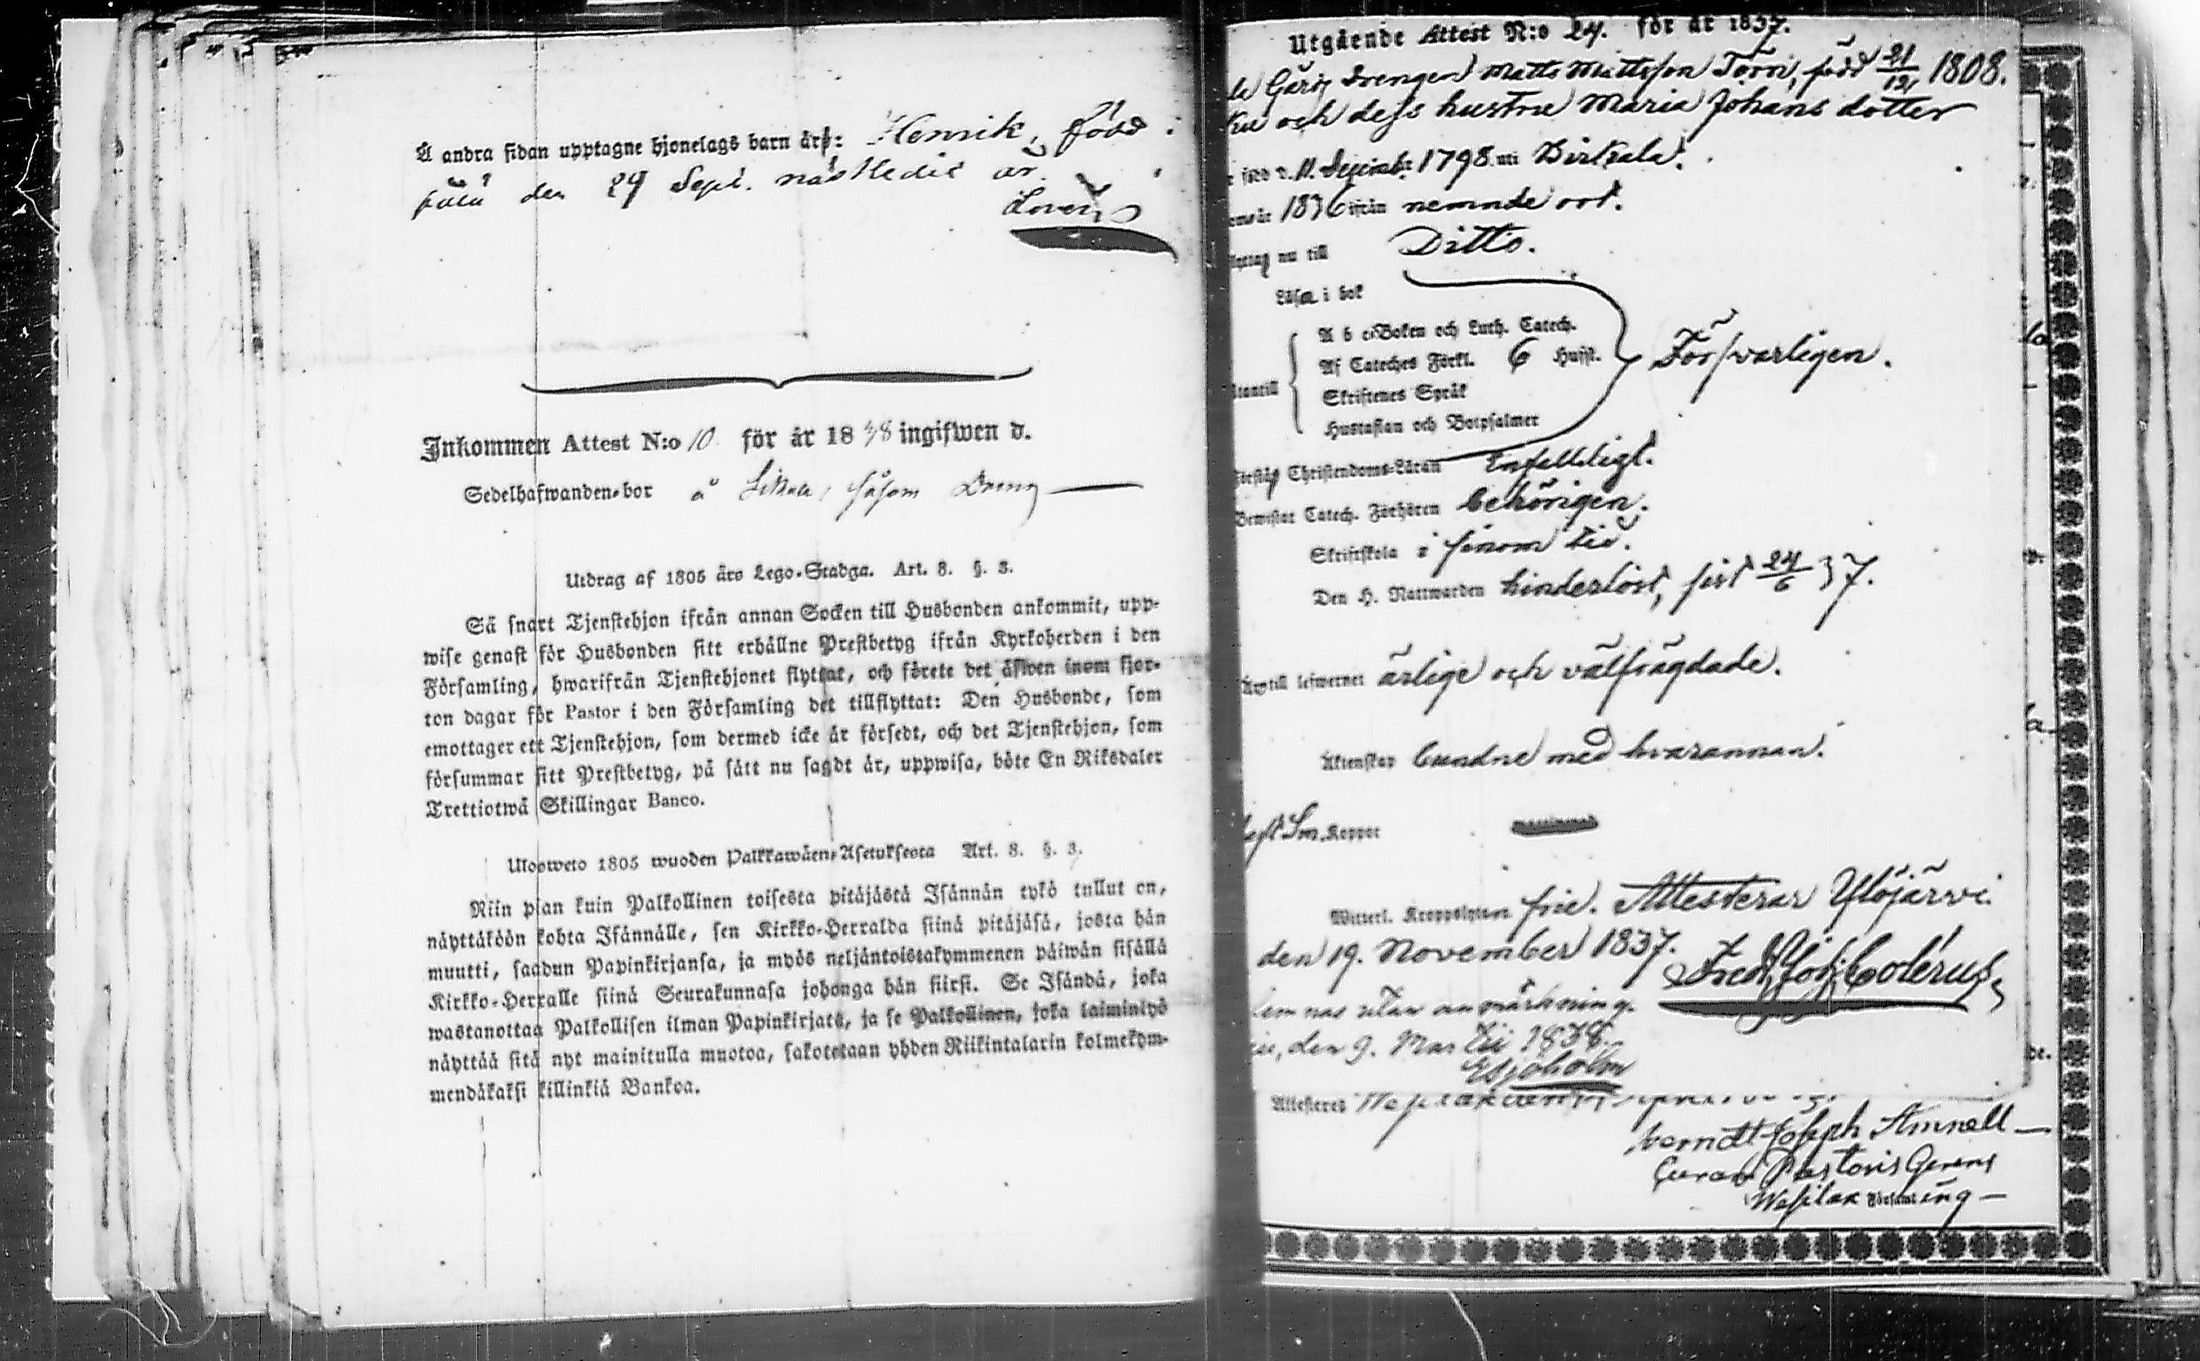 Å andra sidan upptagne hjonelags barn äro: Henrik, född
den 29 Sept. nästledit år.
Inkommen Attest N:o 10 för år 1838 ingifwen d.
Sedelhafwanden bor å såsom Dreng
Utdrag af 1805 års Lego-Stadga. Art. 8. §. 3.
Så snart Tjenstehjon ifrån annan Socken till Husbonden ankommit, upp-
wise genast för Husbonden sitt erhållne Prestbetyg ifrån Kyrkoherden i den
Församling, hwarifrån Tjenstehjonet flyttat, och förete det äfwen inom fjor-
ton dagar för Pastor i den Församling det tillflyttat: Den Husbonde, som
emottager ett Tjenstehjon, som dermed icke är försedt, och det Tjenstehjon, som
försummar sitt Prestbetyg, på sätt nu sagdt är, uppwisa, böte En Riksdaler
Trettiotwå Skillingar Banco.
Ulosweto 1805 wuoden Palkkawäen-Asetuksesta Art. 8. §. 3.
Niin pian kuin Palkollinen toisesta pitäjästä Isännän tykö tullut on,
näyttäköön kohta Isännälle, sen Kirkko-Herralda siinä pitäjäsä, josta hän
muutti, saadun Papinkirjansa, ja myös neljäntoistakymmenen päiwän sisällä
Kirkko-Herralle siinä Seurakunnasa johonga hän siirsi. Se Isändä, joka
wastanottaa Palkollisen ilman Papinkirjata, ja se Palkollinen, joka laiminlyö
näyttää sitä nyt mainitulla muotoa, sakotetaan yhden Riikintalarin kolmekym-
mendäkaksi killinkiä Bankoa.
Utgående Attest N:o 24. för år 1837.
Drengen Matts Mattsson Törri, född 21/12 1808.
och dess hustru Maria Johans dotter
född d. 11 Decemb: 1798 uti Birkala.
1836 ifrån nemnde ort.
nu till Ditto.
Läsa i bok
A b c Boken och Luth. Catech.
Af Cateches Förkl. 6 Hufst.
Skriftenes Språk
Hustaflan och Botpsalmer
Försvarligen.
Förstå Christendoms-Läran Enfaldigt.
Bewistat Catech. Förhören behörigen.
Skriftskola i sinom tid.
Den H. Nattwarden hinderlöst, sist 24/6 37.
till lefwernet ärlige och välfrägdade.
Äktenskap bundne med hvarannan.
Koppor
Witterl. Kroppslyten frie. Attesterar Ylöjärvi
den 19. November 1837.
Fred. Joh. Colérus
utan anmärkning.
den 9. Martii 1838.
Attesteras
Joseph Amnell
Pastoris Gerens
Wesilax Församling